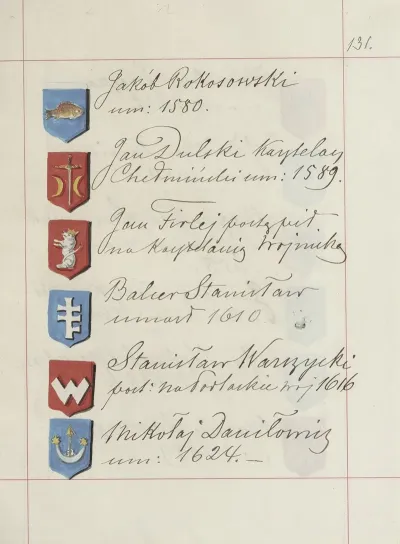 131.
Jakób Rokosowski
um: 1580.
Jan Dulski Kasztelan
Chełmiński um: 1589.
Jan Firlej postąpił
na Kasztelanią Wojnicką
Balcer Stanisław
umarł 1610
Stanisław Warszycki
post: na Podlaskie woj 1616
Mikołaj Daniłowicz
um: 1624.—